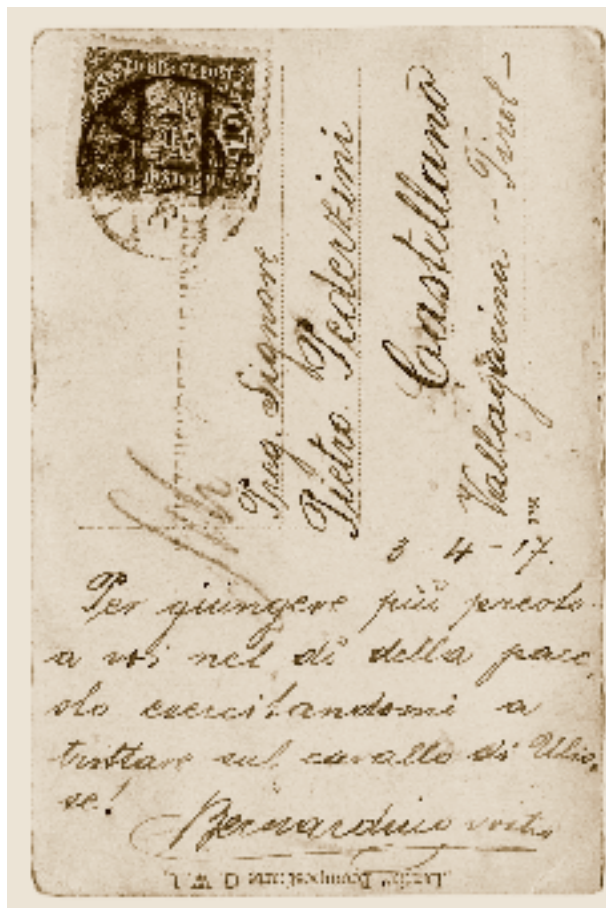 Preg. Signore
Pietro Pederzini
Castellano
Vallagarina - Tirol -
3-4-17.
Per giungere più presto
a voi nel dì della pace,
sto esercitandomi a
trottare sul cavallo di Ulis,
se!
Bernardino vostro